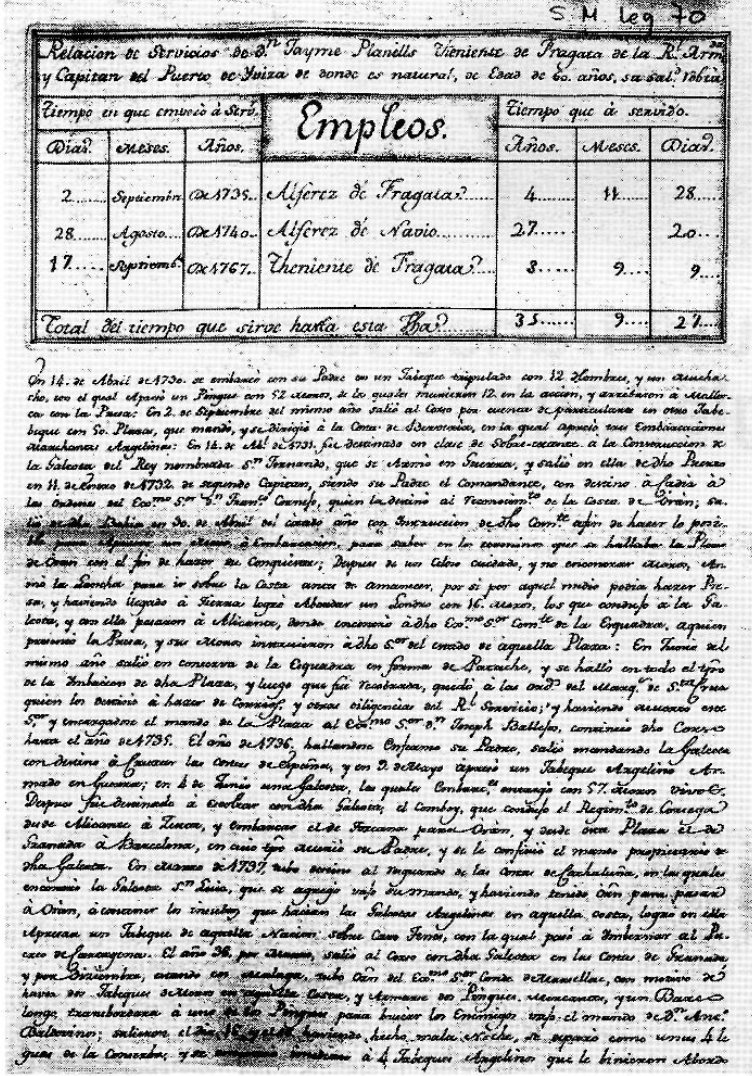 S M leg 70
Relacion de Servicios de Dn. Jayme Planells Theniente de Fragata de la Rl. Armda
y Capitan del Puerto de Yviza de donde es natural, de Edad de 60. años, su sal. robta
Tiempo en que empezó á Serv.
Empleos.
Tiempo que á servido.
Dias. Meses. Años. Años. Meses. Dias.
2 Septiembre De 1735 Alferez de Fragata 4 11 28
28 Agosto De 1740 Alferez de Navio 27 20
17 Septiemb. De 1767 Theniente de Fragata 3 9 9
Total del tiempo que sirve hasta esta fha 35 9 27
En 14. de Abril de 1730. se embarcó con su Padre en un Jabeque tripulado con 12 Hombres, y un Mucha
cho, con el qual Apresó un Pingue con 52 Moros, de los quales murieron 12. en la accion, y arribaron à Mallor
ca con la Presa: En 2. de Septiembre del mismo año salió al Corso por cuenta de particulares en otro Jabe
beque con 50. Plazas, que mandó, y se dirigió à la Costa de Berveria, en la qual apresó tres Embarcaciones
Marchantes Argelinas: En 14. de de 1731. fue destinado en clase de Sobre-vacante à la Construccion de
la Galeota del Rey nombrada Sn. Fernando, que se Armó en Guerra, y salió en ella de dho Puerto
en 11. de Enero de 1732. de segundo Capitan, siendo su Padre el Comandante, con destino à Cadiz à
las Ordenes del Exmo. Sor. Dn. Franco. Cornejo, quien la destinó al reconocimto. de la Costa de Orán; sa
lió de dha Bahia en 30. de Abril del citado año con Instruccion de dho Comte. afin de hacer lo posi
ble para Apresar un Moro, ò Embarcacion, para saber en los terminos que se hallaba la Plaza
de Orán con el fin de hazer su Conquista; Despues de un Celoso cuidado, y no encontrar Moros, Ar
mó la Lancha para ir sobre la Costa antes de amanecer, por si por aquel medio podia hazer Pre
sa, y haviendo llegado à Tierra logró Abordar un Londro con 16. Moros, los que condujo a la Ga
leota, y con ella pasaron à Alicante, donde encontró à dho Exmo. Sor. Comte. de la Esquadra, aquien
presentó la Presa, y sus Moros instruieron à dho Sor. del estado de aquella Plaza: En Junio del
mismo año salió en conserva de la Esquadra en forma de Patache, y se halló en todo el tpo
de la de dha Plaza, y luego que fué recobrada, quedó à las ords. del Marqs. de Sta. Cruz
quien los destinó à hazer de Correos, y otras diligencias del Rl. Servicio; y haviendo muerto este
Sor. y encargadose el mando de la Plaza al Exmo. Sor. Dn. Joseph Ballejo, continuó dho Corso
hasta el año de 1735. El año de 1736, hallandose Enfermo su Padre, salió mandando la Galeota
con destino à Cruzar las Costas de España, y en 9. de Mayo Apresó un Jabeque Argelino Ar
mado en Guerra; en 4 de Junio una Galeota, las quales Embarc. entregó con 57. Moros vivos.
Despues fue destinado à Escoltar con dha Galeota, el Comboy, que condujo el Regimto. de Corcega
desde Alicante à Zeuta, y embarcar el de Toscana para Orán, y desde esta Plaza el de
Granada à Barcelona, en cuio tpo Murió su Padre, y se le confirió el mando propietario de
dha Galeota. En Marzo de 1737, tubo destino al resguardo de las Costas de Cathaluña, en las quales
encontró la Galeota Sn. Luis, que se agregó vajo su mando, y haviendo tenido Orn. para pasar
à Orán, à contener los insultos que hacian las Galeotas Argelinas en aquella costa, logró en ella
Apresar un Jabeque de aquella Nacion sobre Cavo Ferro, con la qual pasó à Imbernar al Pu
erto de Cartagena. El año 38, por Marzo, salió al Corso con dha Galeota en las Costas de Granada
y por Diziembre, estando en Malaga, tubo Orn. del Exmo. Sor. Conde de , con motivo de
haver dos Jabeques de Moros en aquella Costa, y Armarse dos Pingues, Mercantes, y un Barco
longo, transbordara à uno de los Pingues para buscar los Enemigos vajo el mando de Dn. Anto.
Balterino; salieron el dia 16 y el haviendo hecho mala Noche, se separó como unas 4 le
guas de la Conserba, y se à 4 Jabeques Argelinos que le binieron Abordo